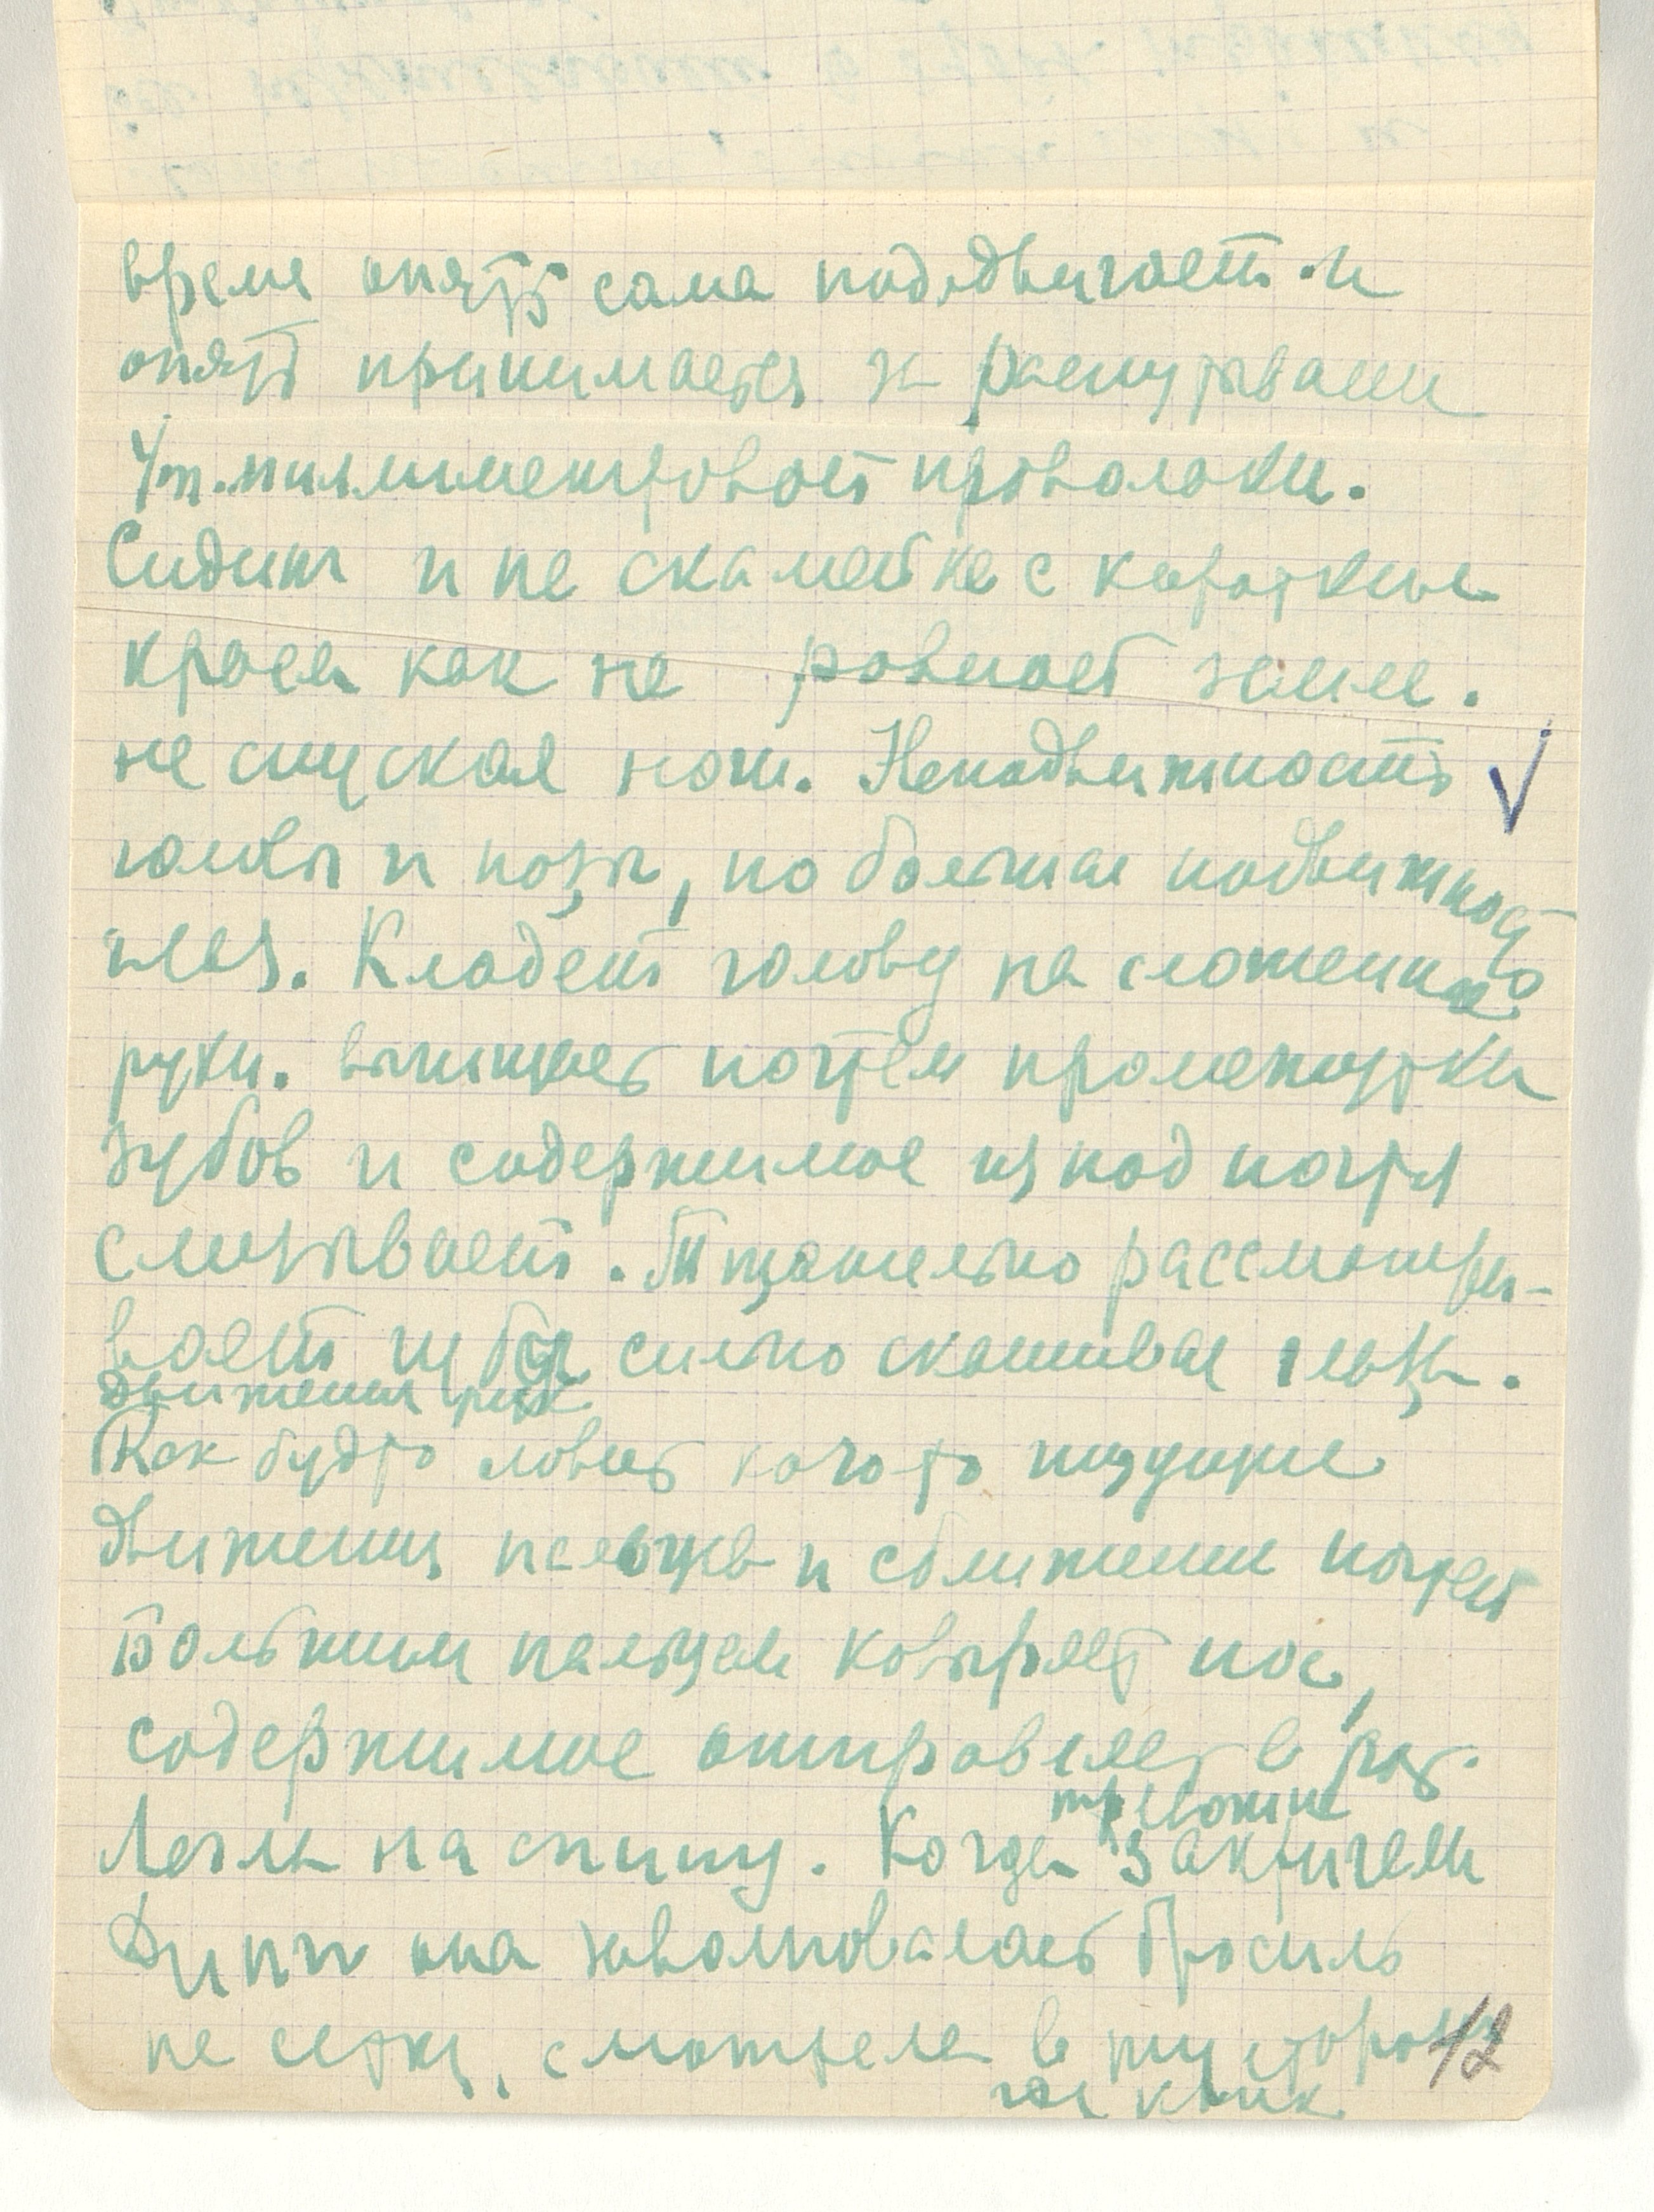 время опять сама пододвигает и
опять принимается за распутывание
проволоки.
Сидит и на скамейке с коротким
краем как на ровной земле.
не спуская ноги. Неподвижность
головы и позы, но большая подвижность
глаз. Кладет голову на сложенные
руки. вычищает ногтем промежутки
зубов и содержимое из под ногтя
слизывает. Тщательно рассматри-
вает губы сильно скашивая глаза.
движения рук
Как будто ловит кого то
движения пальцев и сближение ногтей
Большим пальцем ковыряет нос,
содержимое отправляет в рот.
тревожно
Легла на спину. Когда закричали
она заволновалась бросилась
на сетку, смотрела в ту сторону
где крик
12